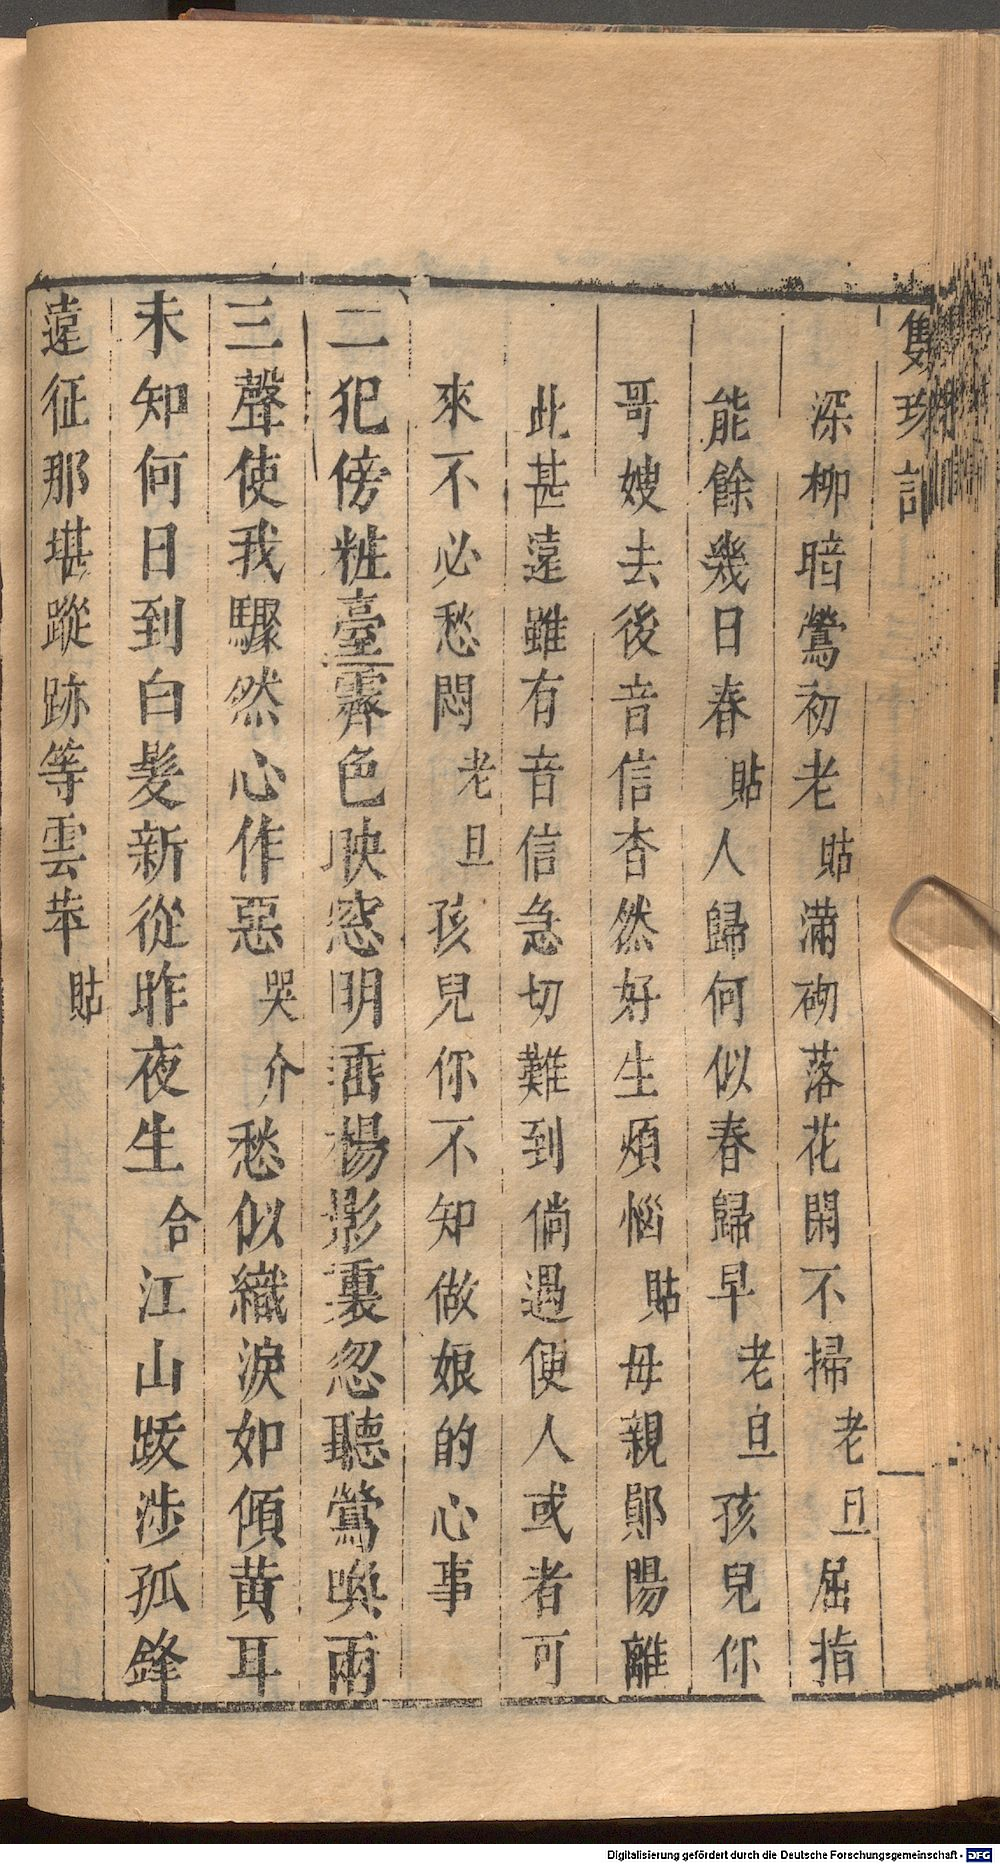 雙珠記
深柳暗鶯初老貼滿砌落花閑不掃老旦屈指
能餘幾日春貼人歸何似春歸早老旦孩兒你
哥嫂去後音信杳然好生煩惱貼母親鄖陽離
此甚遠雖有音信急切難到倘遇便人或者可
來不必愁悶老旦孩兒你不知做娘的心事
二犯傍粧臺霽色映窓明垂楊影裏忽聽鶯喚兩
三聲使我驟然心作惡哭介愁似織淚如傾黃耳
未知何日到白髮新從昨夜生合江山跋涉孤鋒
遠征那堪蹤跡等雲萍貼
Digitalisierung gefördert durch die Deutsche Forschungsgemeinschaft - DFG